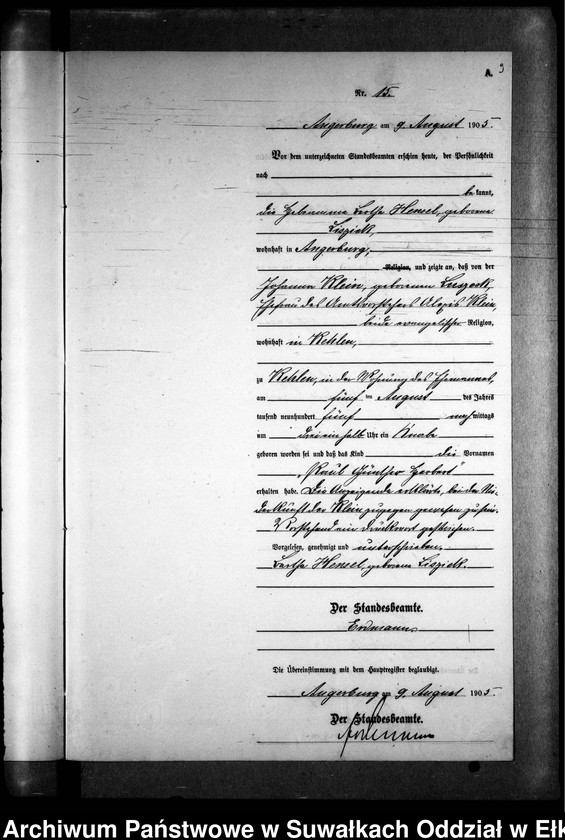 A. 9
Nr. 15.
Angerburg am 9. August 1905.
Vor dem unterzeichneten Standesbeamten erschien heute, der Persönlichkeit
nach
bekannt,
die Hebamme Bertha Hensel, geborene
Liszick,
wohnhaft in Angerburg,
Religion, und zeigte an, daß von der
Johanna Klein, geborenen
Ehefrau des Amtsvorstehers Klein,
beide evangelischer Religion,
wohnhaft in Kehlen,
zu Kehlen, in der Wohnung des Ehemannes,
am fünf ten August des Jahres
tausend neunhundert fünf nachmittags
um drei ein halb Uhr ein Knabe
geboren worden sei und daß das Kind die Vornamen
"Paul Günther Herbert"
erhalten habe. Die Anzeigende erklärte, bei der Nie-
derkunft der Klein zugegen gewesen zu sein.
Vorstehend ein Druckwort gestrichen.
Vorgelesen, genehmigt und unterschrieben.
Bertha Hensel, geborene Liszick.
Der Standesbeamte.
Erdmann.
Die Übereinstimmung mit dem Hauptregister beglaubigt.
Angerburg am 9. August 1905
Der Standesbeamte.
Erdmann
Archiwum Państwowe w Suwałkach Oddział w Ełk